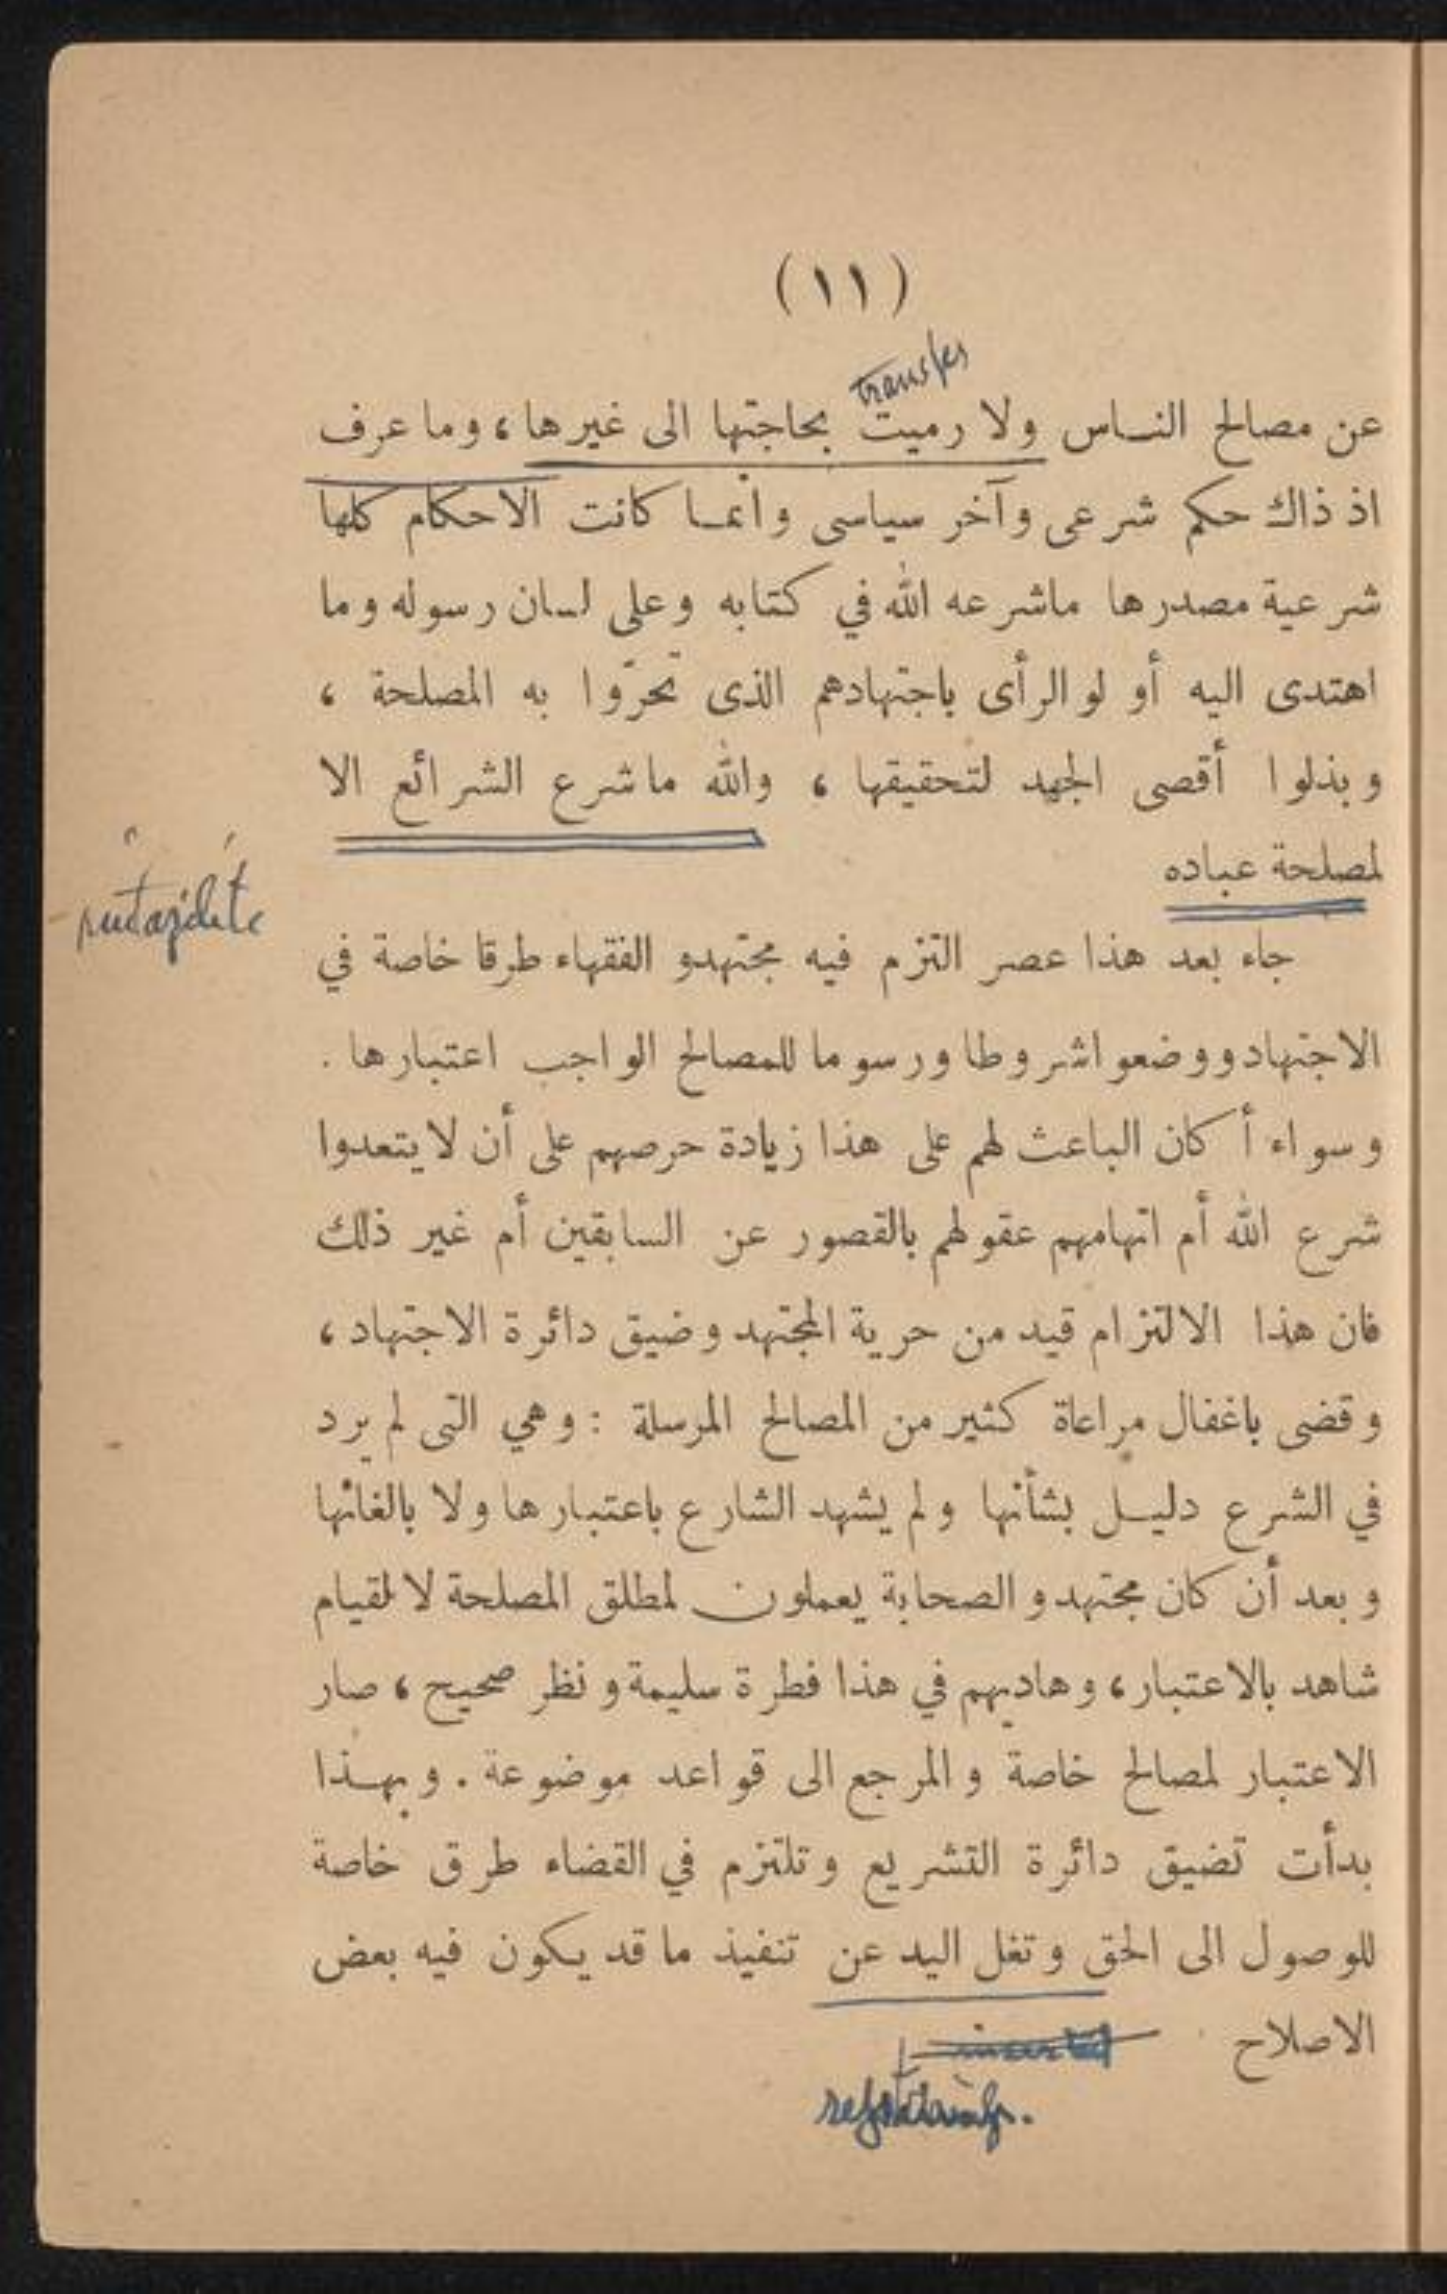 (١١)
transfer
عن مصالح النــاس ولا رميت بحاجتها الى غيرها ، وما عرف
اذ ذاك حكم شرعى وآخر سياسى وانمــا كانت الاحكام كلها
شرعية مصدرها ماشرعه الله في كتابه وعلى لسان رسوله وما
اهتدى اليه أولو الرأى باجتهادهم الذى تحرّوا به المصلحة ،
وبذلوا أقصى الجهد لتحقيقها ، والله ماشرع الشرائع الا
لمصلحة عباده
جاء بعد هذا عصر التزم فيه مجتهدو الفقهاء طرقا خاصة في
الاجتهاد ووضعوا شروطا ورسوما للمصالح الواجب اعتبارها .
وسواء أكان الباعث لهم على هذا زيادة حرصهم على أن لا يتعدوا
شرع الله أم اتهامهم عقولهم بالقصور عن السابقين أم غير ذلك
فان هذا الالتزام قيد من حرية المجتهد وضيق دائرة الاجتهاد ،
وقضى باغفال مراعاة كثير من المصالح المرسلة : وهي التى لم يرد
في الشرع دليــل بشأنها ولم يشهد الشارع باعتبارها ولا بالغائها
وبعد أن كان مجتهدو الصحابة يعملون لمطلق المصلحة لا لقيام
شاهد بالاعتبار ، وهاديهم في هذا فطرة سليمة ونظر صحيح ، صار
الاعتبار لمصالح خاصة والمرجع الى قواعد موضوعة . وبهــذا
بدأت تضيق دائرة التشريع وتلتزم في القضاء طرق خاصة
للوصول الى الحق وتغل اليد عن تنفيذ ما قد يكون فيه بعض
الاصلاح